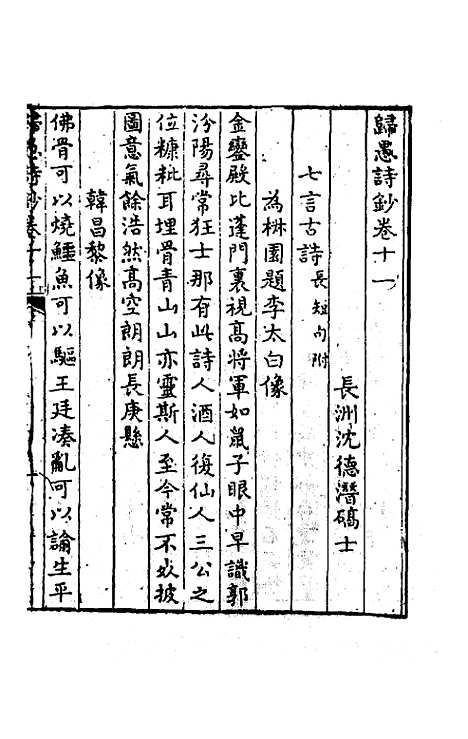 歸愚詩鈔卷十一
長洲沈德潛碻士
七言古詩長短句附
為楙園題李太白像
金鑾殿比蓬門裏視高將軍如鼠子眼中早識郭
汾陽尋常狂士那有此詩人酒人復仙人三公之
位糠粃耳埋骨青山山亦靈斯人至今常不死披
圖意氣餘浩然高空朗朗長庚懸
韓昌黎像
佛骨可以燒鱷魚可以驅王廷凑亂可以論生平